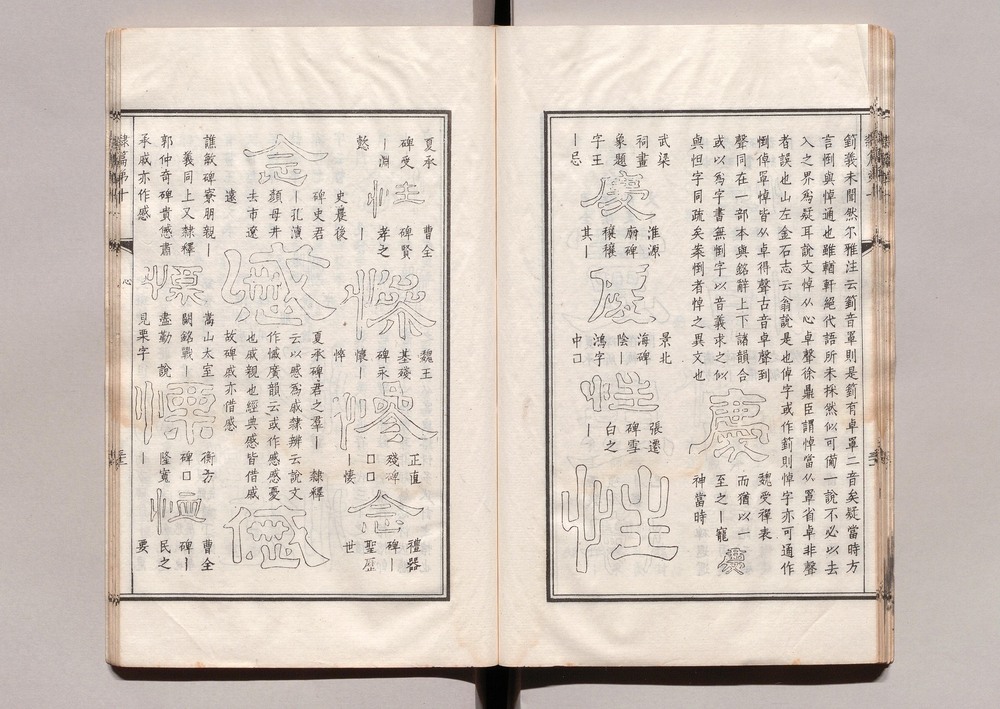 箌義未聞然尔雅注云箌音罩則是箌有卓罩二音矣疑當時方
言倒與悼通也雖輶軒絕代語所未採然似可僃一說不必以去
入之界為疑耳說文悼从心卓聲徐鼎臣謂悼當从罩省卓非聲
者誤也山左金石志云翁說是也倬字或作箌則悼字亦可通作
倒倬罩悼皆从卓得聲古音卓聲到
聲同在一部本與銘辭上下諸韻合
或以為字書無倒字以音義求之似
與怛字同疏矣案倒者悼之異文也
慶
魏受禪表
而猶以一
至之丨寵
神當時
慶
武梁
祠畫
象題
字王
丨忌
慶
淮源
廟碑
穰穰
其丨
慶
景北
海碑
陰丨
鴻字
中口
性
張遷
碑雪
白之
丨
性
夏承
碑受
丨淵
懿
性
曹全
碑賢
孝之
丨
慘
魏王
基殘
碑永
懷丨
悴
慘
正直
殘碑
口口
丨悽
念
禮器
碑丨
聖歷
世
念
史晨後
碑史君
丨孔瀆
顏母井
去市遼
遠
感
夏承碑君之羣丨 隸釋
云以感為戚隸辨云說文
作慽廣韻云或作感感憂
也戚親也經典感皆借戚
故碑戚亦借感
感
譙敏碑寮朋親丨
義同上又隸釋
郭仲奇碑貴慽肅
承戚亦作感
慄
嵩山太室
闕銘戰丨
盡勤 說
見栗字
慄
衡方
碑口
隆寬
丨
恤
曹全
碑丨
民之
要
隸篇第十
心